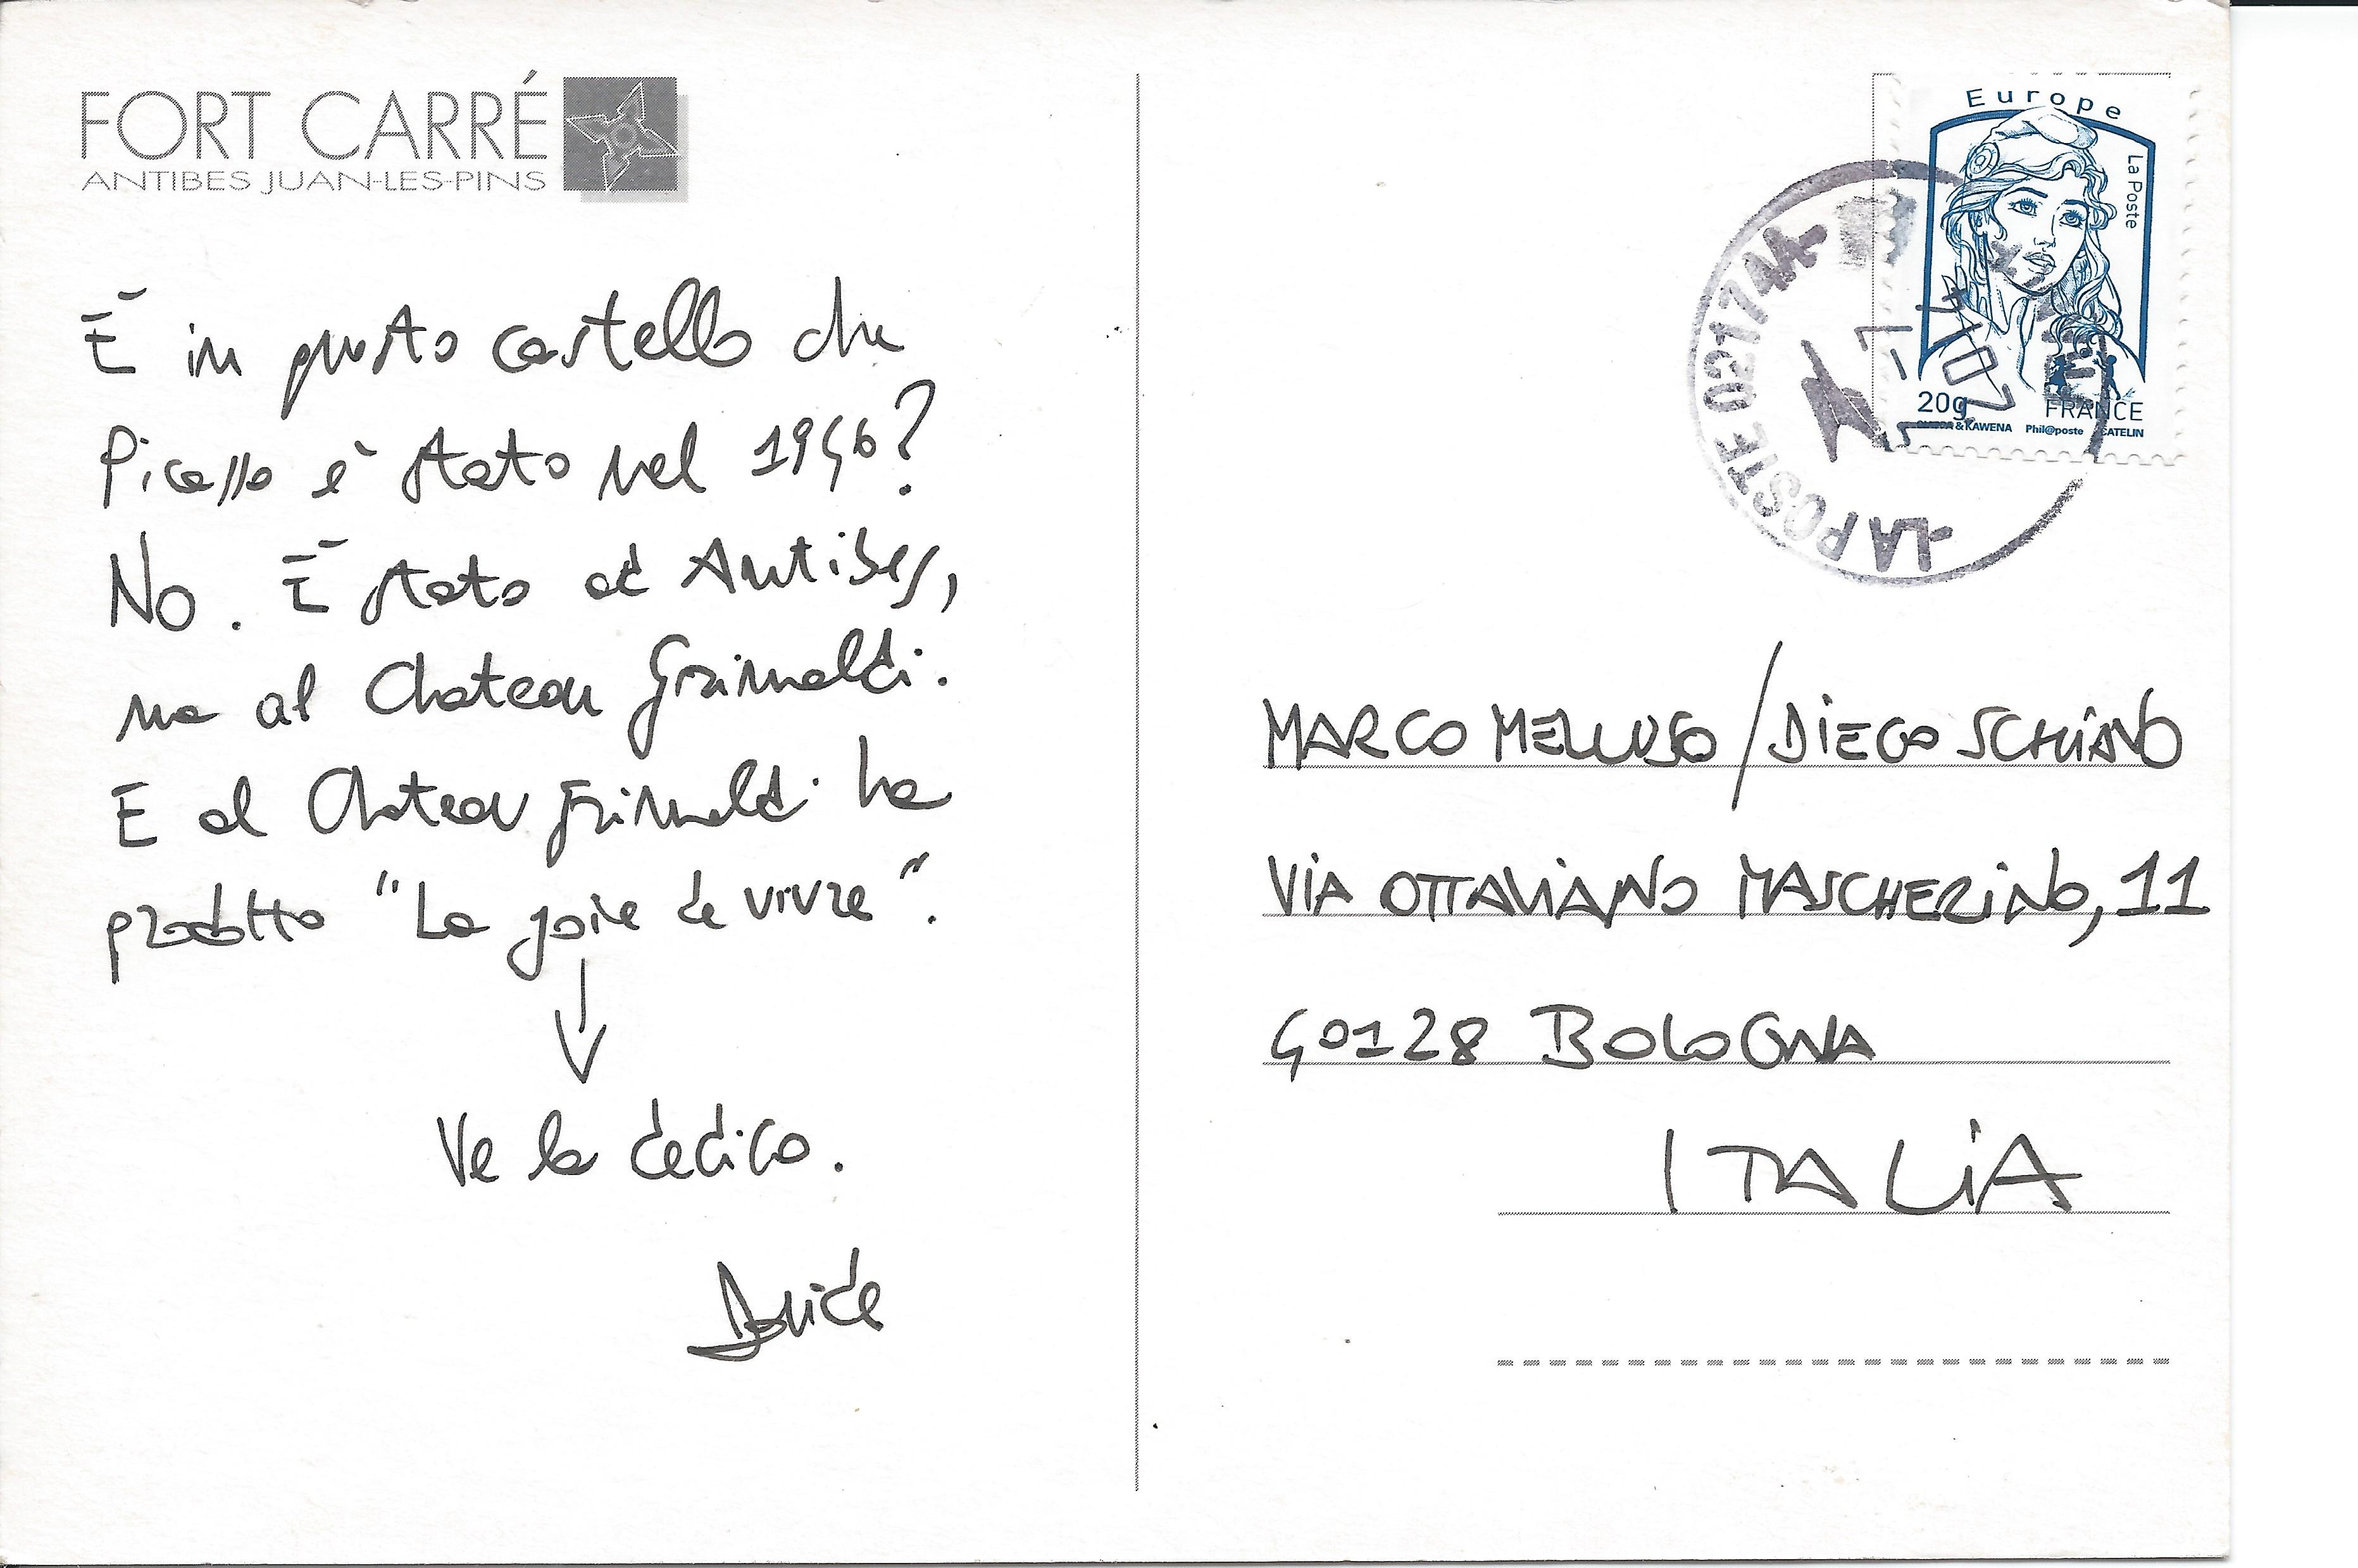 FORT CARRÉ
ANTIBES JUAN-LES-PINS
È in questo castello che
Picasso è stato nel 1946?
No. È stato ad Antibes,
ma al Chateau Grimaldi.
E al Chateau Grimaldi ha
prodotto "La joie de vivre".
Ve la dedico.
Davide
Europe
La Poste
20g FRANCE
& KAWENA Phil@poste
LA POSTE 02174A
MARCO MELLUSO / DIEGO SCHIANO
VIA OTTAVIANO MASCHERINO, 11
40128 BOLOGNA
ITALIA